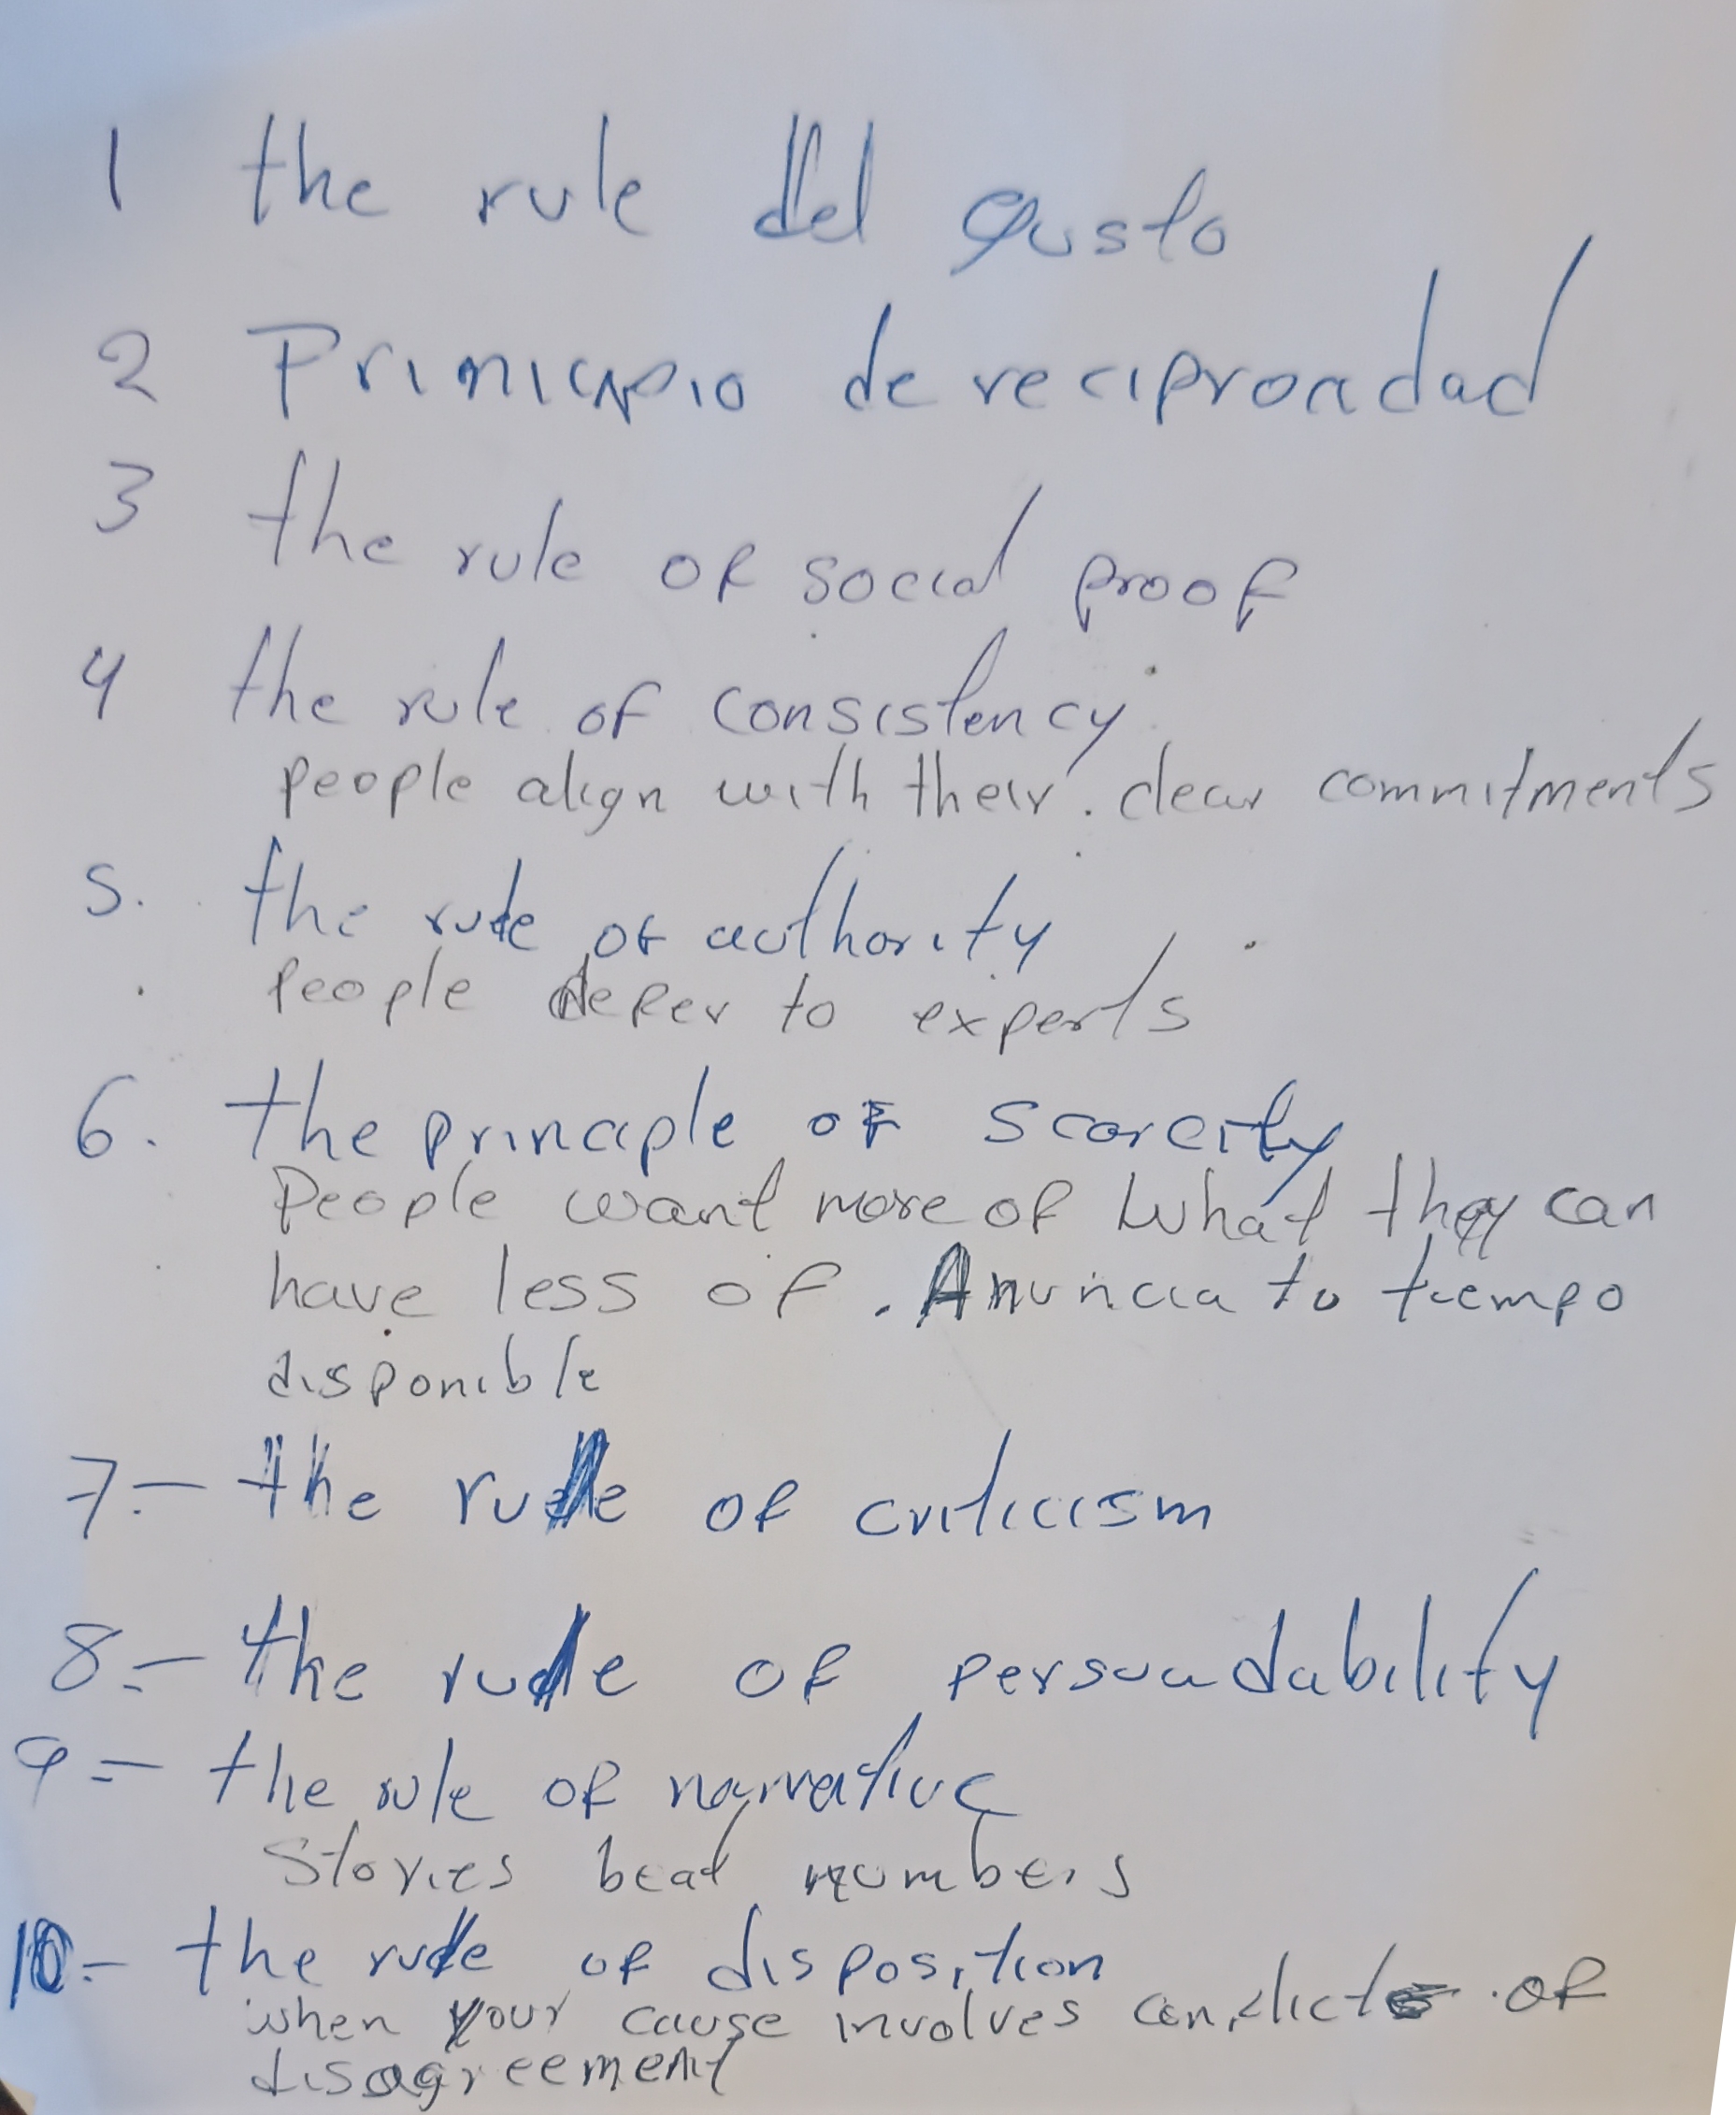 1 the rule del gusto
2 Principio de reciprocidad
3 the rule of social proof
4 the rule of consistency
people align with their clear commitments
5. the rule of authority
People defer to experts
6. the principle of scarcity
People want more of what they can
have less of. Anuncia tu tiempo
disponible
7.- the rule of criticism
8.- the rule of persuadability
9.- the rule of narrative
Stories beat numbers
10.- the rule of disposition
when your cause involves conflict of
disagreement